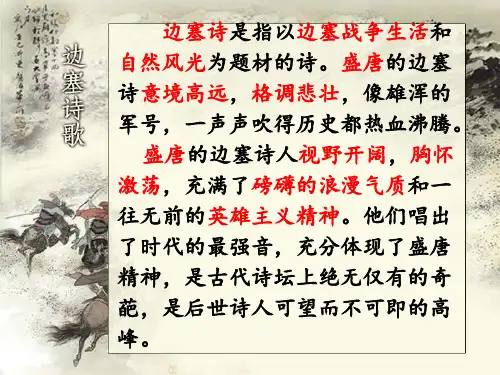 边塞诗歌
边塞诗是指以边塞战争生活和
自然风光为题材的诗。盛唐的边塞
诗意境高远，格调悲壮，像雄浑的
军号，一声声吹得历史都热血沸腾。
盛唐的边塞诗人视野开阔，胸怀
激荡，充满了磅礴的浪漫气质和一
往无前的英雄主义精神。他们唱出
了时代的最强音，充分体现了盛唐
精神，是古代诗坛上绝无仅有的奇
葩，是后世诗人可望而不可即的高
峰。